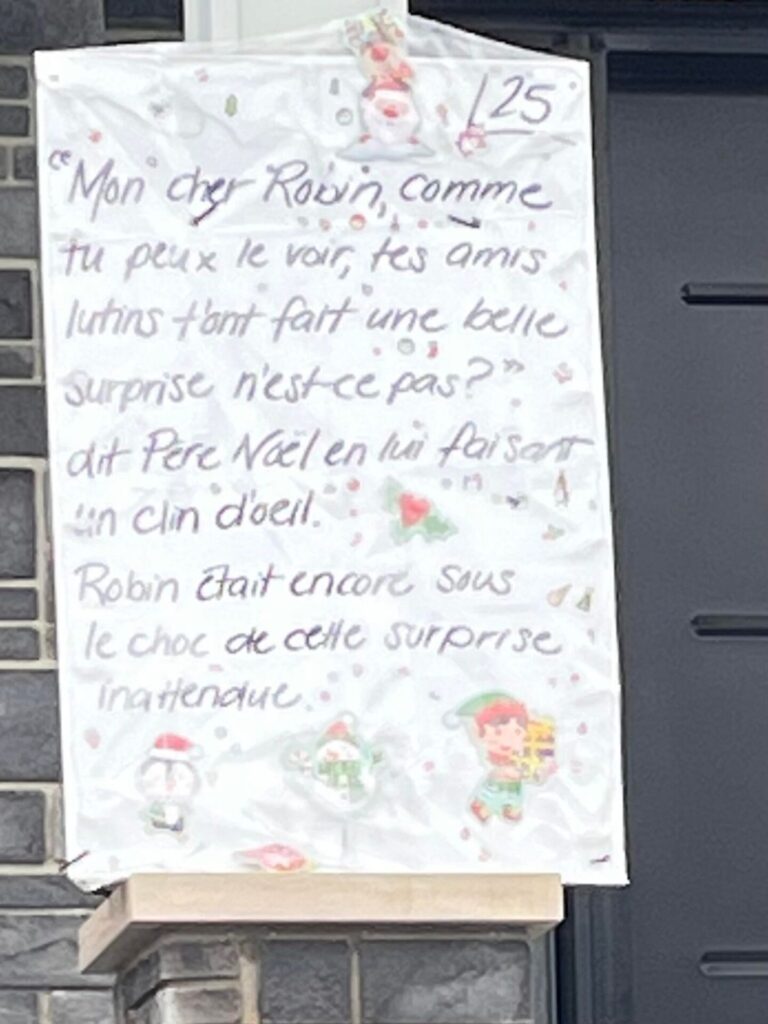 25
"Mon cher Robin, comme
tu peux le voir, tes amis
lutins t'ont fait une belle
surprise n'est-ce pas?"
dit Père Noël en lui faisant
un clin d'oeil.
Robin était encore sous
le choc de cette surprise
inattendue.